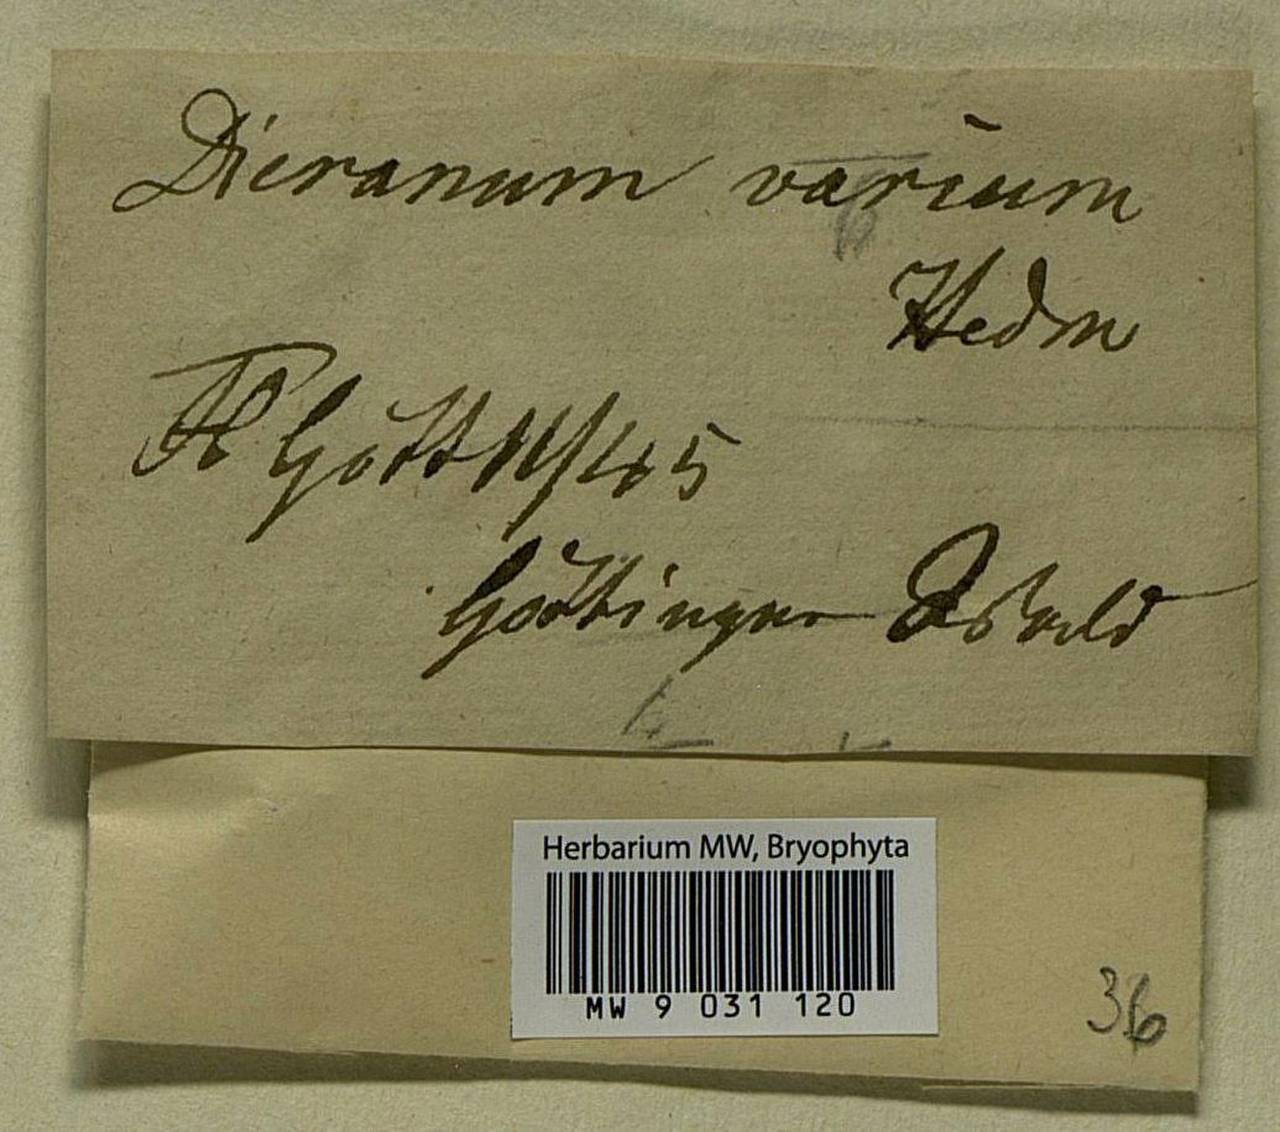 Dicranum varium
Hedw
Fl Gött 11/45
Göttingen
Herbarium MW, Bryophyta
MW 9 031 120
36